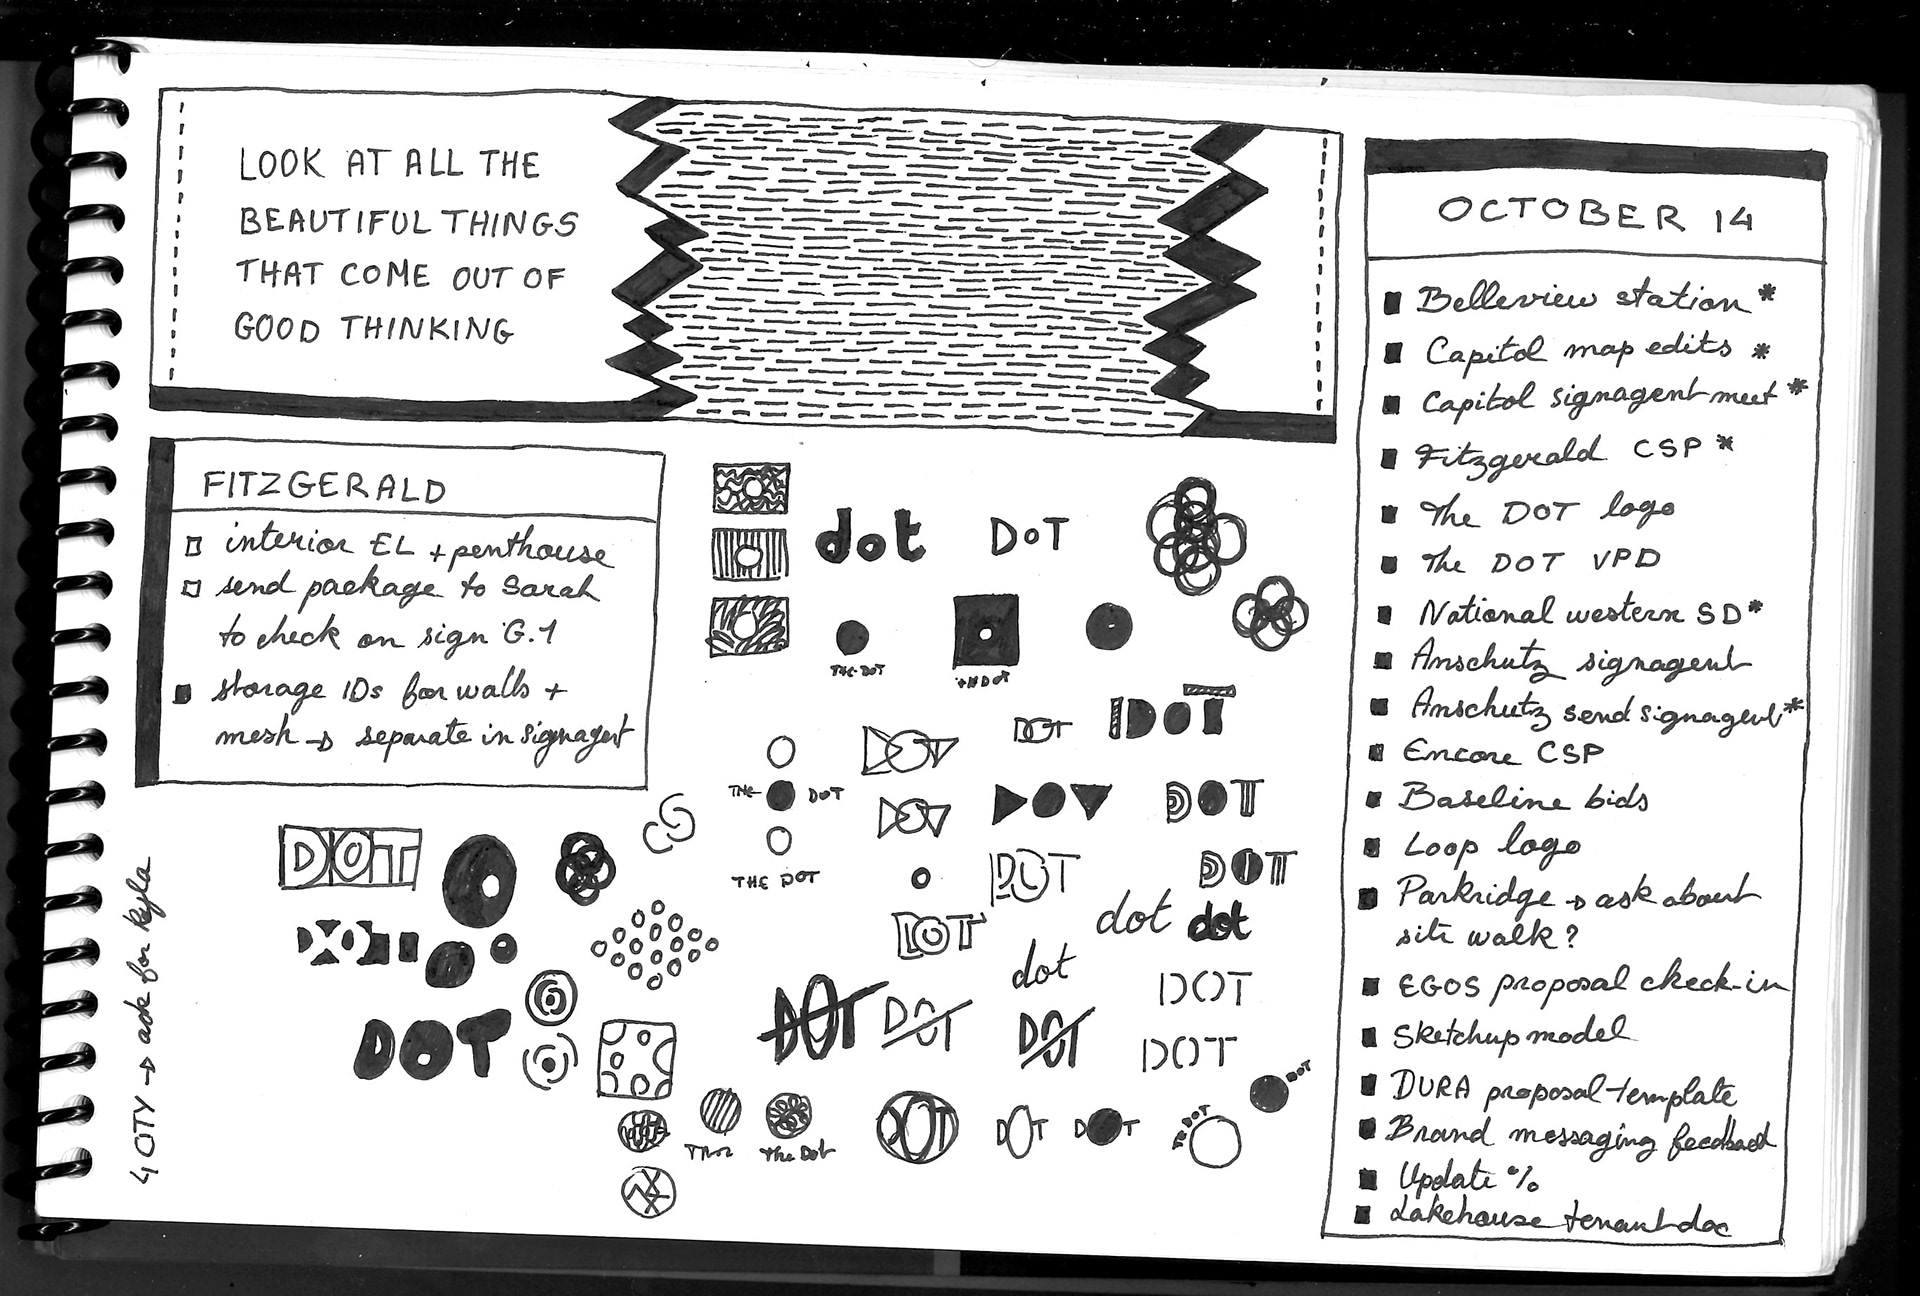 LOOK AT ALL THE
BEAUTIFUL THINGS
THAT COME OUT OF
GOOD THINKING
FITZGERALD
interior EL + penthouse
send package to Sarah
to check on sign G.1
storage IDs for walls +
mesh → separate in signagent
QTY → ask for Kyla
dot
DOT
THE DOT
DOT
DOT
DOT
THE DOT
DOT
DOT
DOT
THE DOT
DOT
DOT
DOT
DOT
dot
dot
dot
DOT
DOT
DOT
DOT
DOT
DOT
DOT
DOT
The Dot
DOT
DOT
DOT
THE DOT
OCTOBER 14
Belleview station *
Capitol map edits *
Capitol signagent meet *
Fitzgerald CSP *
The DOT logo
The DOT VPD
National western SD *
Anschutz signagent
Anschutz send signagent *
Encore CSP
Baseline bids
Loop logo
Parkridge → ask about
site walk?
EGOS proposal check-in
Sketchup model
DURA proposal template
Brand messaging feedback
Update %
Lakehouse tenant doc